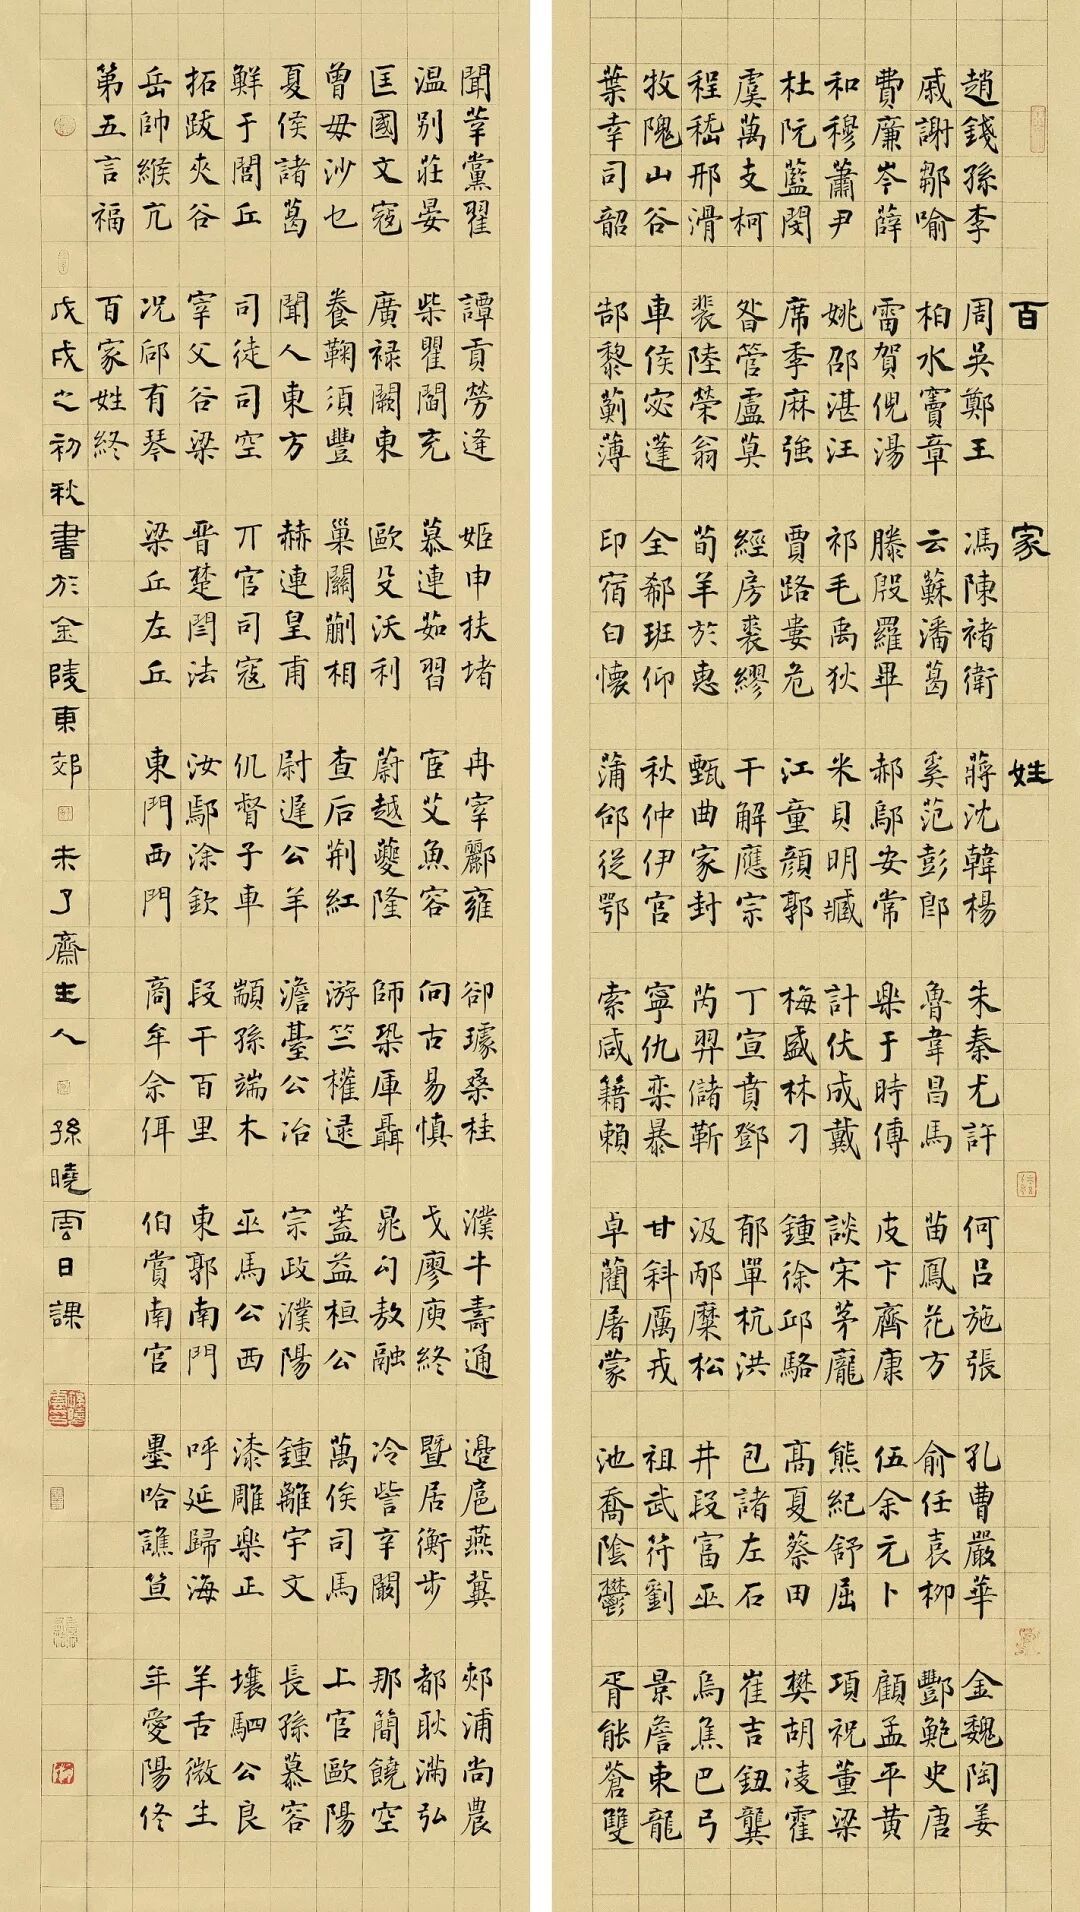 百家姓
趙錢孫李 周吳鄭王 馮陳褚衛 蔣沈韓楊 朱秦尤許 何吕施張 孔曹嚴華 金魏陶姜
戚謝鄒喻 柏水竇章 云蘇潘葛 奚范彭郎 魯韋昌馬 苗鳳花方 俞任袁柳 酆鮑史唐
費廉岑薛 雷賀倪湯 滕殷羅畢 郝鄔安常 樂于時傅 皮卞齊康 伍余元卜 顧孟平黄
和穆蕭尹 姚邵湛汪 祁毛禹狄 米貝明臧 計伏成戴 談宋茅龐 熊紀舒屈 項祝董梁
杜阮藍閔 席季麻強 賈路婁危 江童顏郭 梅盛林刁 鍾徐邱駱 高夏蔡田 樊胡凌霍
虞萬支柯 昝管盧莫 經房裘繆 干解應宗 丁宣賁鄧 郁單杭洪 包諸左石 崔吉鈕龔
程嵇邢滑 裴陸榮翁 荀羊於惠 甄曲家封 芮羿儲靳 汲邴糜松 井段富巫 烏焦巴弓
牧隗山谷 車侯宓蓬 全郗班仰 秋仲伊宫 寧仇欒暴 甘斜厲戎 祖武符劉 景詹束龍
葉幸司韶 郜黎薊薄 印宿白懷 蒲邰從鄂 索咸籍賴 卓藺屠蒙 池喬陰鬱 胥能蒼雙
聞莘黨翟 譚貢勞逄 姬申扶堵 冉宰酈雍 卻璩桑桂 濮牛壽通 邊扈燕冀 郟浦尚農
温别莊晏 柴瞿閻充 慕連茹習 宦艾魚容 向古易慎 戈廖庾終 暨居衡步 都耿滿弘
匡國文寇 廣禄闕東 歐殳沃利 蔚越夔隆 師鞏厙聶 晁勾敖融 冷訾辛闞 那簡饒空
曾毋沙乜 養鞠須豐 巢關蒯相 查后荆紅 游竺權逯 蓋益桓公 萬俟司馬 上官歐陽
夏侯諸葛 聞人東方 赫連皇甫 尉遲公羊 澹臺公冶 宗政濮陽 鍾離宇文 長孫慕容
鮮于閭丘 司徒司空 丌官司寇 仉督子車 顓孫端木 巫馬公西 漆雕樂正 壤駟公良
拓跋夾谷 宰父谷梁 晋楚閆法 汝鄢涂欽 段干百里 東郭南門 呼延歸海 羊舌微生
岳帥緱亢 况郈有琴 梁丘左丘 東門西門 商牟佘佴 伯賞南宫 墨哈譙笪 年愛陽佟
第五言福 百家姓終
戊戌之初秋書於金陵東郊 未了齋主人 孫曉雲日課